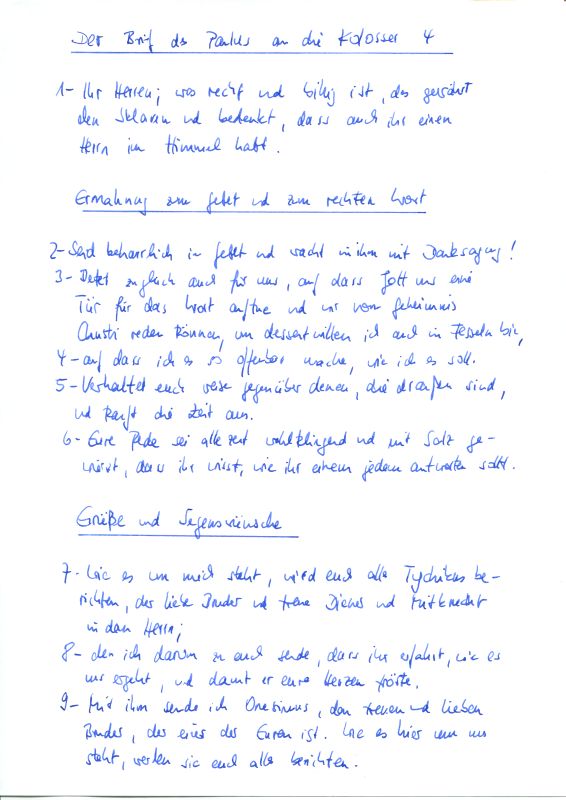 Der Brief des Paulus an die Kolosser 4
1- Ihr Herren; was recht und billig ist, das gewährt
den Sklaven und bedenkt, dass auch ihr einen
Herrn im Himmel habt.
Ermahnung zum Gebet und zum rechten Wort
2- Seid beharrlich im Gebet und wacht in ihm mit Danksagung!
3- Betet zugleich auch für uns, auf dass Gott uns eine
Tür für das Wort auftue und wir vom Geheimnis
Christi reden können, um dessentwillen ich auch in Fesseln bin,
4- auf dass ich es so offenbar mache, wie ich es soll.
5- Verhaltet euch weise gegenüber denen, die draußen sind,
und kauft die Zeit aus.
6- Eure Rede sei alle Zeit wohlklingend und mit Salz ge-
würzt, dass ihr wisst, wie ihr einem jedem antworten sollt.
Grüße und Segenswünsche
7- Wie es um mich steht, wird euch alles Tychikus be-
richten, der liebe Bruder und treue Diener und Mitknecht
in dem Herrn;
8- den ich darum zu euch sende, dass ihr erfahrt, wie es
uns ergeht, und damit er eure Herzen tröste.
9- Mit ihm sende ich Onesimus, den treuen und lieben
Bruder, der einer der Euren ist. Wie es hier um uns
steht, werden sie euch alles berichten.